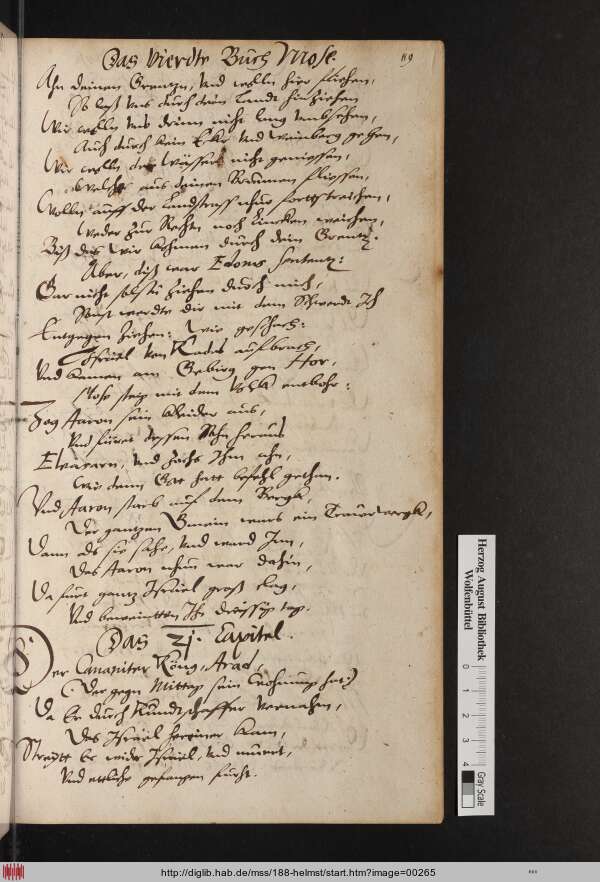 Das vierdte Buch Mose.
119
An deinen Grentzn, und wolln hier fliehen,
So laß uns durch dein Landt hinziehen
Wir wolln uns drinn nicht lang umbsehen,
Auch durch kein Eker und Weinberg gehen,
Wir wolln der Wässer nicht geniessen,
Welche aus deinen Brunnen fliessen,
Wolln auff der Landstrass nhur fortt streichen,
Weder zur Rechten noch Lincken weichen,
Biß das wir kohmen durch dein Grentz.
Aber, diß war Edoms sententz:
Gar nicht soltu ziehen durch mich,
Sonst werde dir mit dem Schwerdt Ich
Entgegen ziehen: Wie geschach:
Israel von Kades auffbrach,
Und kamen am Gebirg gen Hor,
Mose steig mit dem Volk
Zog Aaron sein kleider aus,
Und dessen Sohn
Eleasarn, und zochs Ihm ahn,
Wie dann Gott hatt befehl gethan.
Und Aaron starb auff dem Bergk,
Der gantzen Gmein wars ein Traurwergk,
Dann als sie sahe, und ward Inn,
Das Aaron nhun war dahin,
Da furt gantz Israel groß klag,
Und beweintten Ihn dreissig tag.
Das 21. Capitel.
Der Cananiter König, Arad,
(Der gegn Mittag sein wohnung hat)
Da Er durch Kundtschaffer vernahm,
Das Israel hereiner kam,
Streytt Er wider Israel, und
Und ettliche gefangen furht.
Herzog August Bibliothek
Wolfenbüttel
0 1 2 3 4
Gray Scale
http://diglib.hab.de/mss/188-helmst/start.htm?image=00265